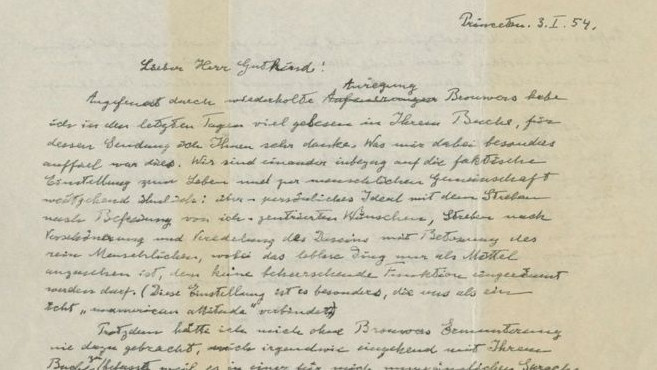 Princeton. 3. I. 54.
Lieber Herr Gutkind!
Angefeuert durch wiederholte Anregung Brouwers habe
ich in den letzten Tagen viel gelesen in Ihrem Buche, für
dessen Sendung ich Ihnen sehr danke. Was mir dabei besonders
auffiel war dies. Wir sind einander inbezug auf die faktische
Einstellung zum Leben und zur menschlichen Gemeinschaft
weitgehend ähnlich: über-persönliches Ideal mit dem Streben
nach Befreiung von ich-zentrierten Wünschen, Streben nach
Verschönerung und Veredelung des Daseins mit Betonung des
rein Menschlichen, wobei das leblose Ding nur als Mittel
anzusehen ist, dem keine beherrschende Funktion eingeräumt
werden darf. (Diese Einstellung ist es besonders, die uns als ein
echt „unamerican attitude" verbindet)
Trotzdem hätte ich mich ohne Brouwers Ermunterung
nie dazu gebracht, mich irgendwie eingehend mit Ihrem
Buche zu befassen, weil es in einer für mich unzugänglichen Sprache